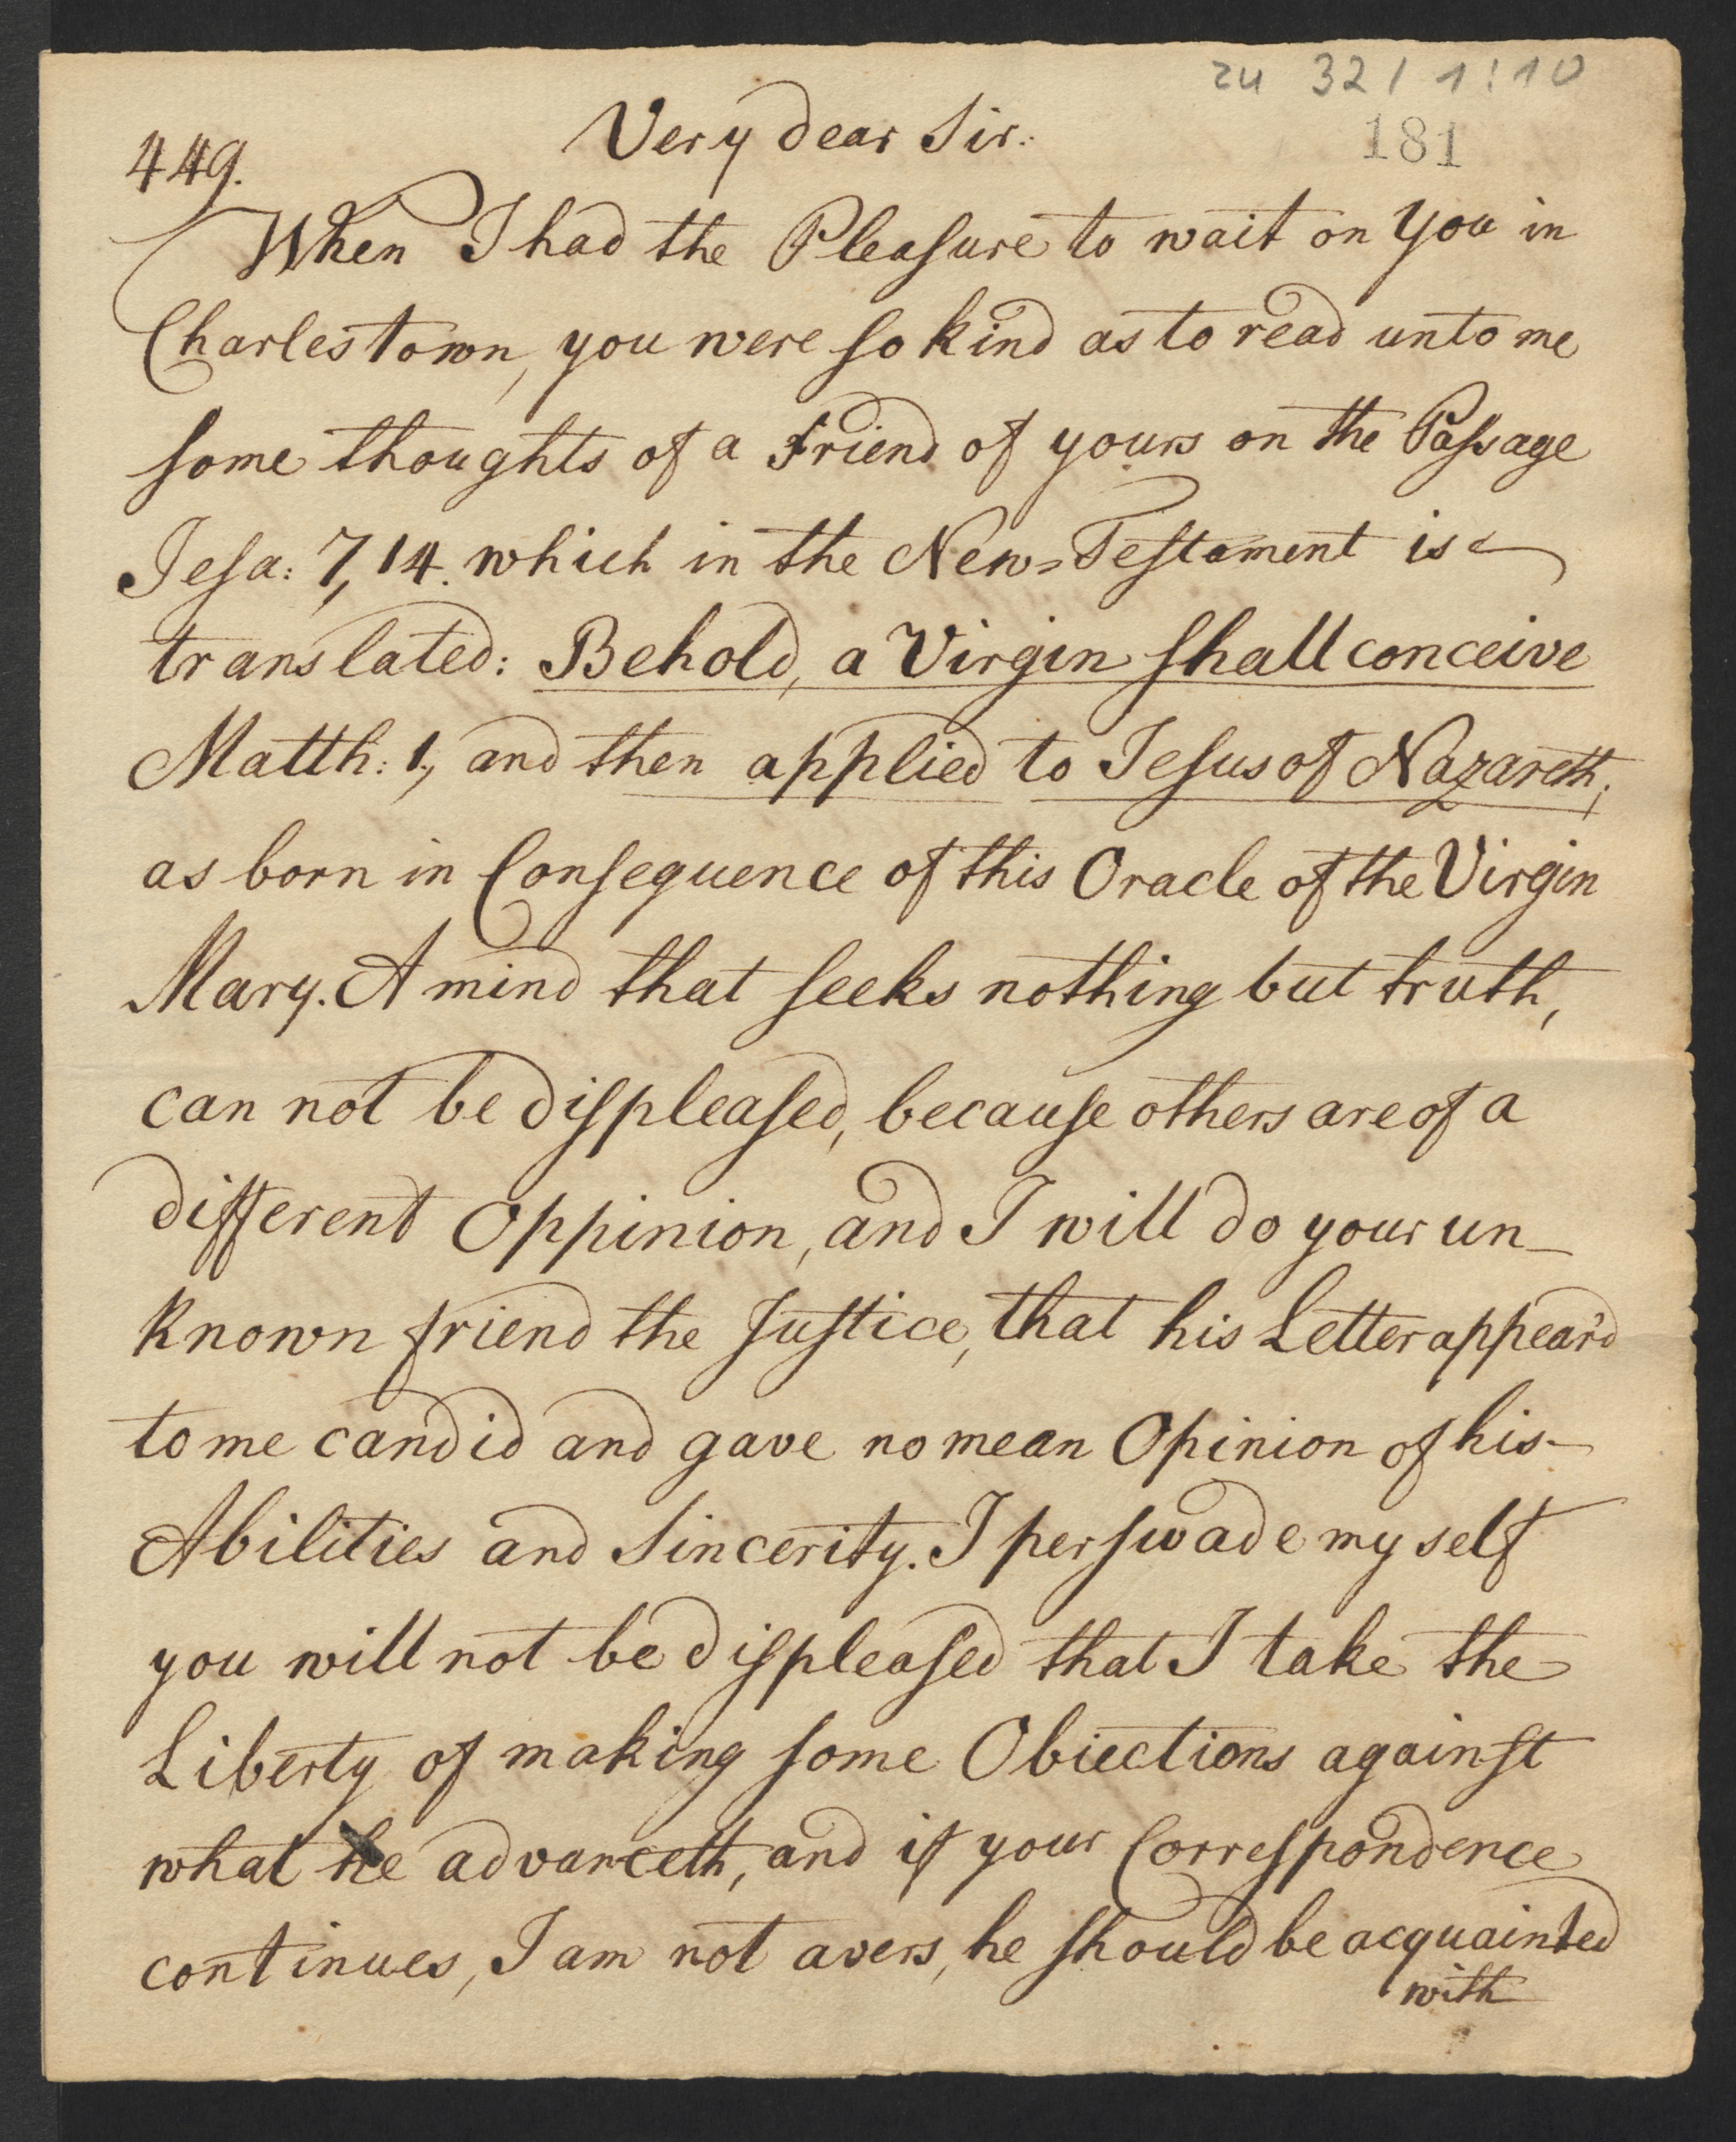 zu 32 / 1 : 10
181
449.
Very dear Sir.
When I had the Pleasure to wait on You in
Charlestown, you were so kind as to read unto me
some thoughts of a Friend of yours on the Passage
Jesa: 7, 14. which in the New-Testament is
translated: Behold, a Virgin shall conceive
Matth: 1, and then applied to Jesus of Nazareth,
as born in Consequence of this Oracle of the Virgin
Mary. A mind that seeks nothing but truth,
can not be displeased, because others are of a
different Oppinion, and I will do your un-
known friend the Justice, that his Letter appear'd
to me candid and gave no mean Opinion of his
Abilities and Sincerity. I perswade my self
you will not be displeased that I take the
Liberty of making some Obiections against
what he advanceth, and if your Correspondence
continues, I am not avers, he should be acquainted
with